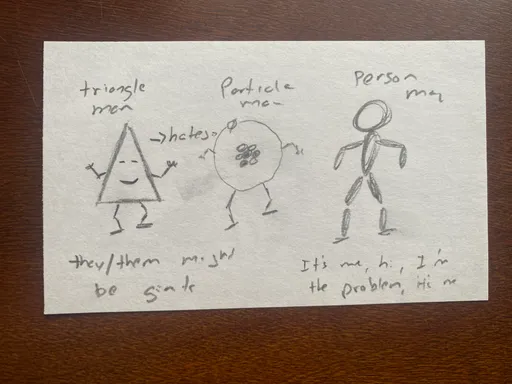 triangle
man
Particle
man
Person
man
→hates→
they/them might
be giants
It's me, hi, I'm
the problem, it's me